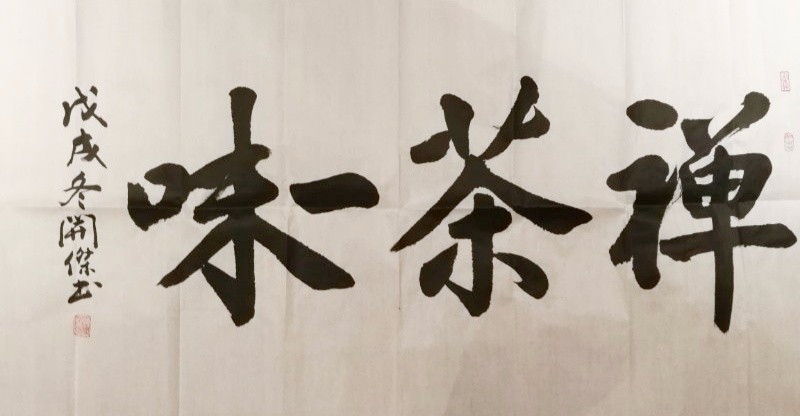 禅茶一味
戊戌冬開傑书